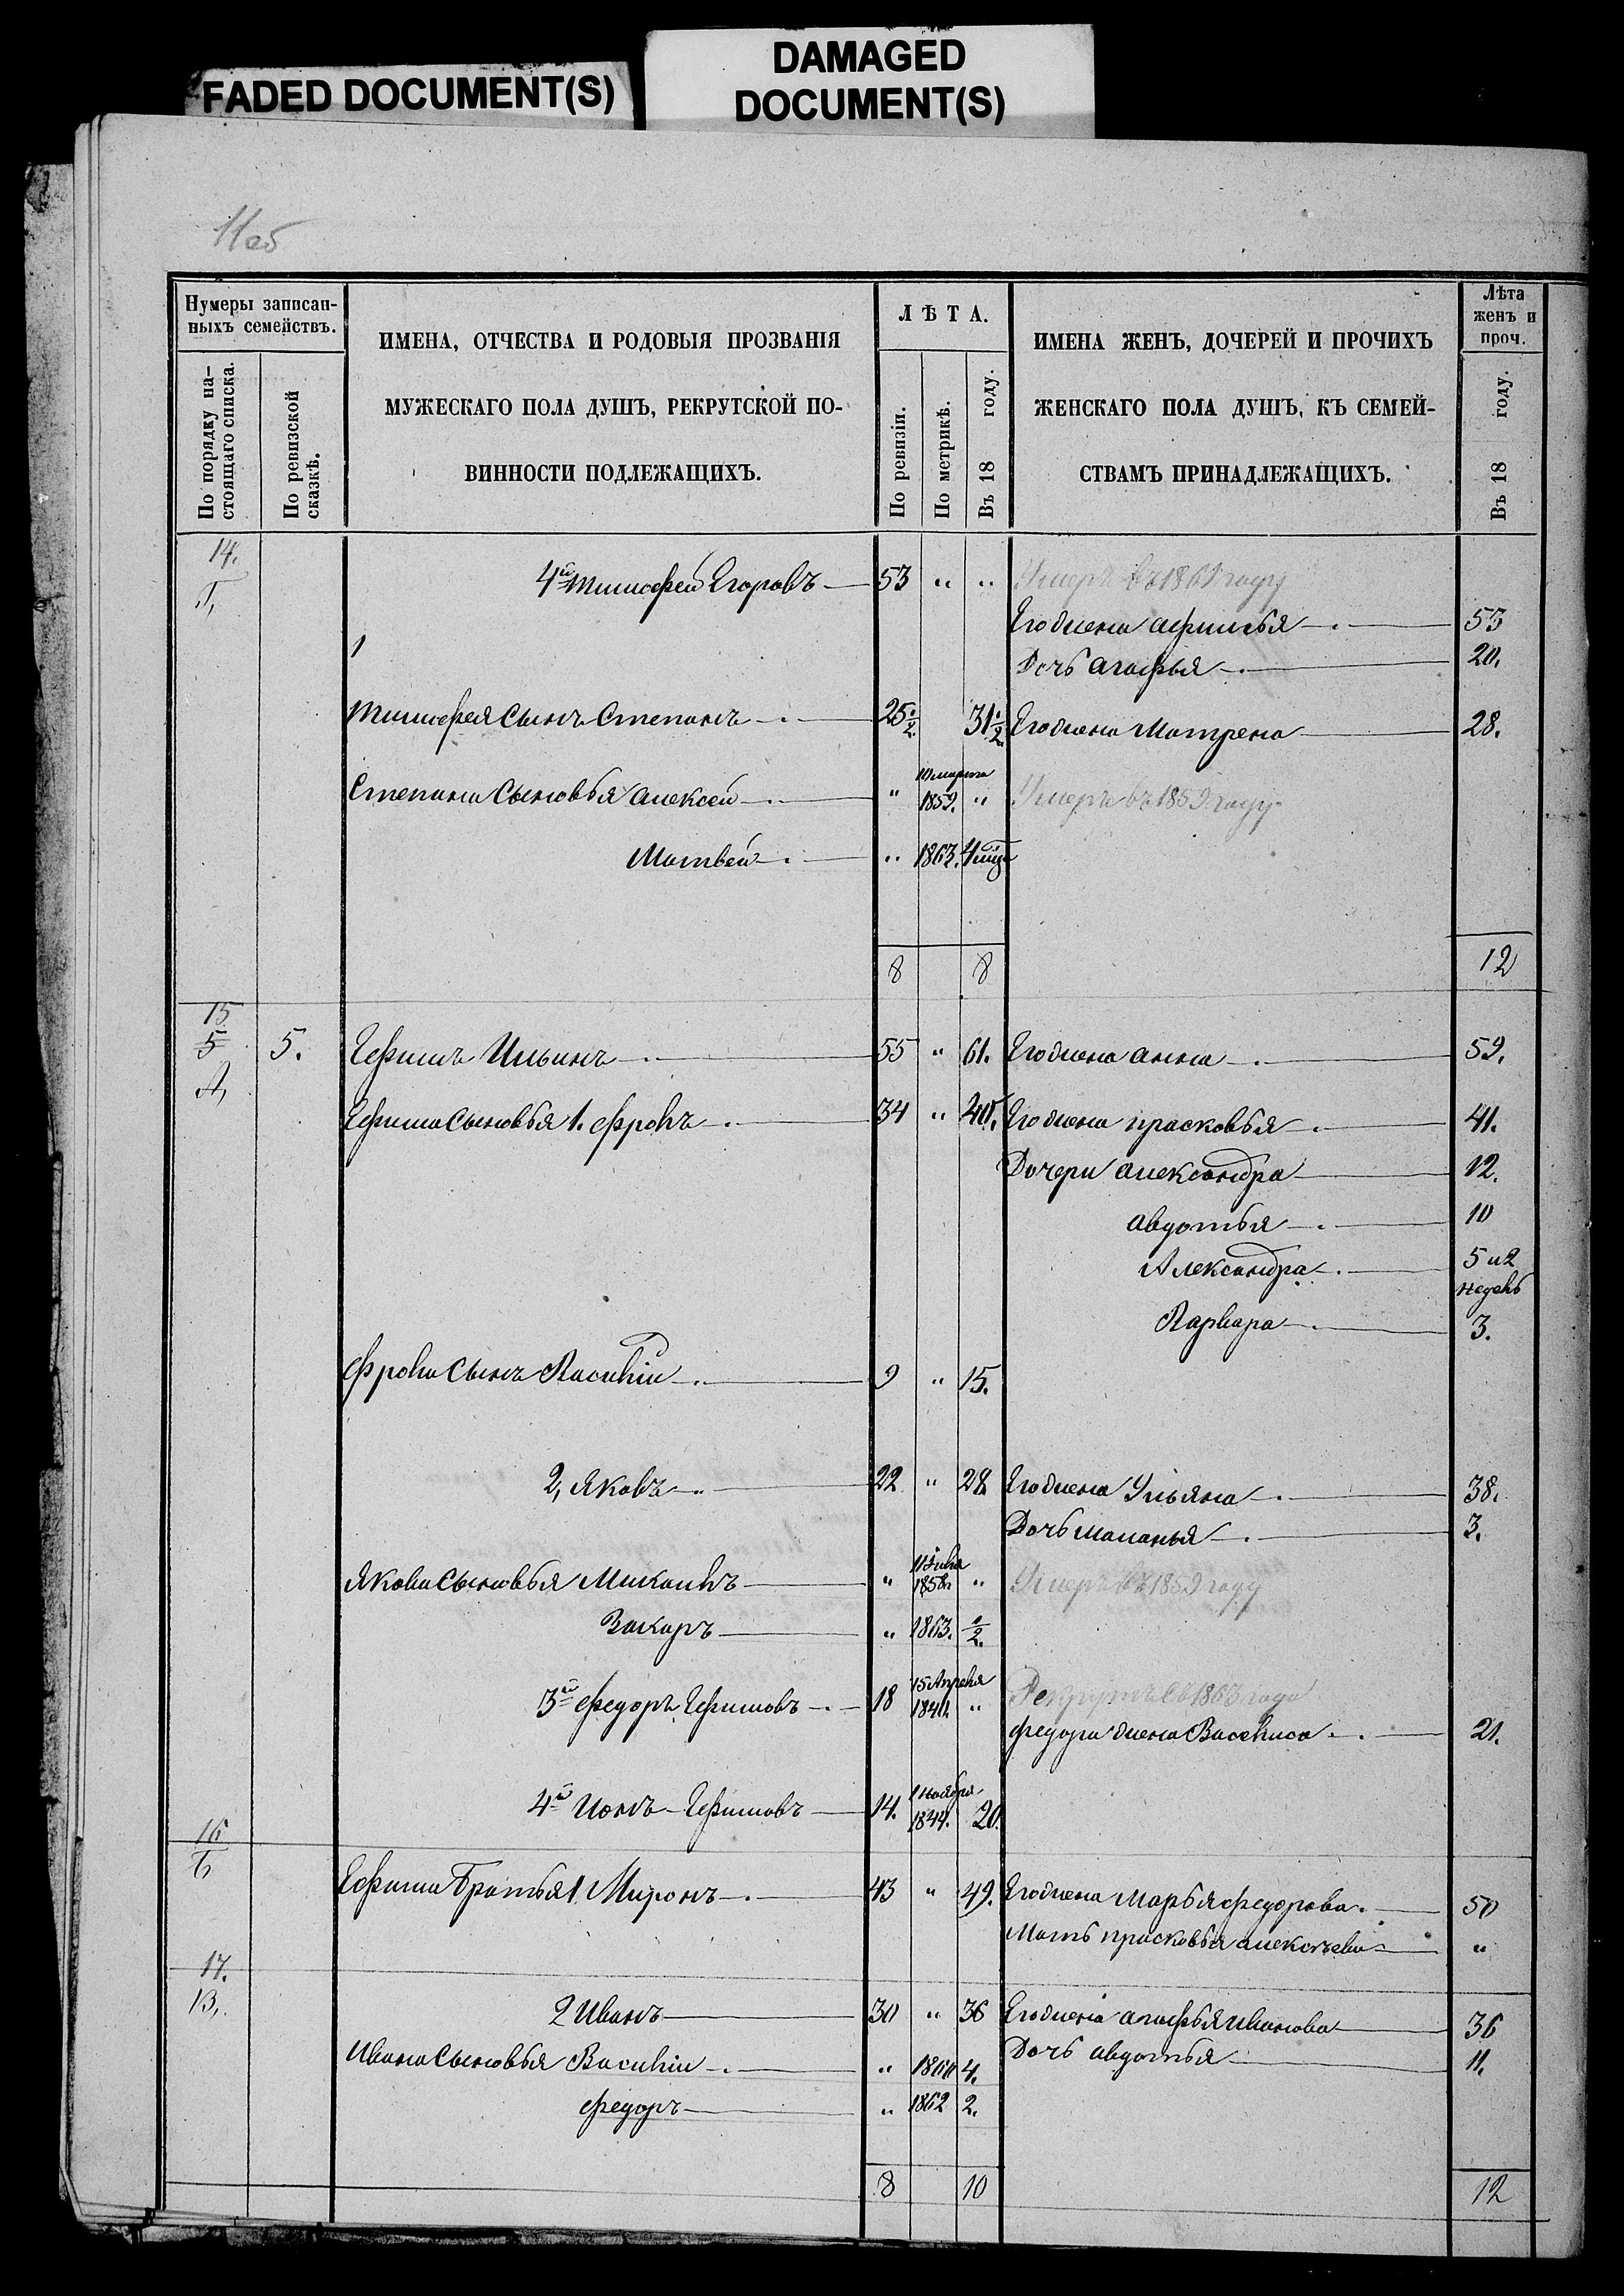 FADED DOCUMENT(S)
DAMAGED
DOCUMENT(S)
11об
Нумеры записан-
ныхъ семействъ.
По порядку на-
стоящаго списка.
По ревизской
сказкѣ.
ИМЕНА, ОТЧЕСТВА И РОДОВЫЯ ПРОЗВАНІЯ
МУЖЕСКАГО ПОЛА ДУШЪ, РЕКРУТСКОЙ ПО-
ВИННОСТИ ПОДЛЕЖАЩИХЪ.
ЛѢТА.
По ревизіи.
По метрикѣ.
Въ 18 году.
ИМЕНА ЖЕНЪ, ДОЧЕРЕЙ И ПРОЧИХЪ
ЖЕНСКАГО ПОЛА ДУШЪ, КЪ СЕМЕЙ-
СТВАМЪ ПРИНАДЛЕЖАЩИХЪ.
Лѣта
женъ и
проч.
Въ 18 году.
14.
Г,
4й Тимофей Егоровъ 53 " " Умеръ въ 1861 году
Его жена афимья 53
1
Дочь агафья 20.
Тимофея Сынъ Степанъ 25 1/2 31 1/2 Его жена Матрена 28.
Степана Сыновья алексей " 10 марта 1859. " Умеръ въ 1859 году
Матвей " 1863. 4 мца
8 8 12
15
5 5. Ефимъ Ильинъ 55 " 61. Его жена анна 59.
А,
Ефима Сыновья 1. фролъ 34 " 40. Его жена прасковья 41.
Дочери александра 12.
авдотья 10
Александра 5 и 2
недель
Варвара 3.
фрола Сынъ Василій 9 " 15.
2, Яковъ 22 " 28 Его жена Ульяна 38.
Дочь маланья 3.
Якова Сыновья Михаилъ " 1858. " Умеръ въ 1859 году
Захаръ " 1863. 1/2.
3й федоръ Ефимовъ 18 15 Апреля 1840. " Рекрутъ съ 1863 года
федора жена Василиса 21.
4й Ионъ Ефимовъ 14. 1 ноября 1844. 20.
16
Б,
Ефима Братья 1 Миронъ 43 " 49. Его жена Марья федорова 50
Мать прасковья алексѣева "
17.
В,
2 Иванъ 30 " 36 Его жена агафья иванова 36
Ивана Сыновья Василій " 1860 4. Дочь авдотья 11.
федоръ " 1862 2.
8 10 12